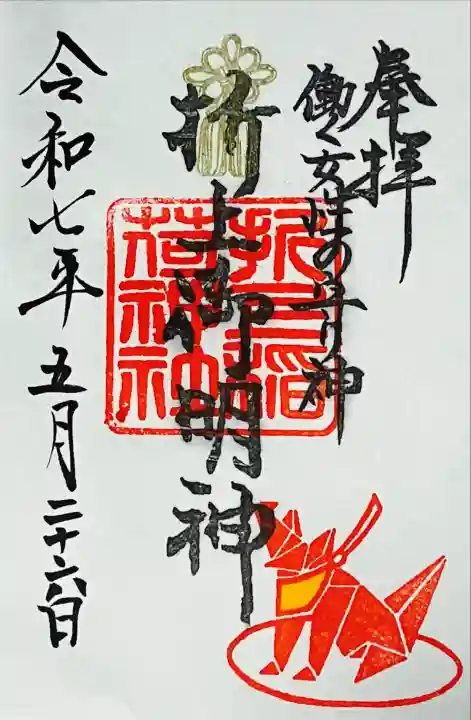 奉拝
働く女性の守り神
折上御明神
折上稲荷神社
令和七年五月二十六日